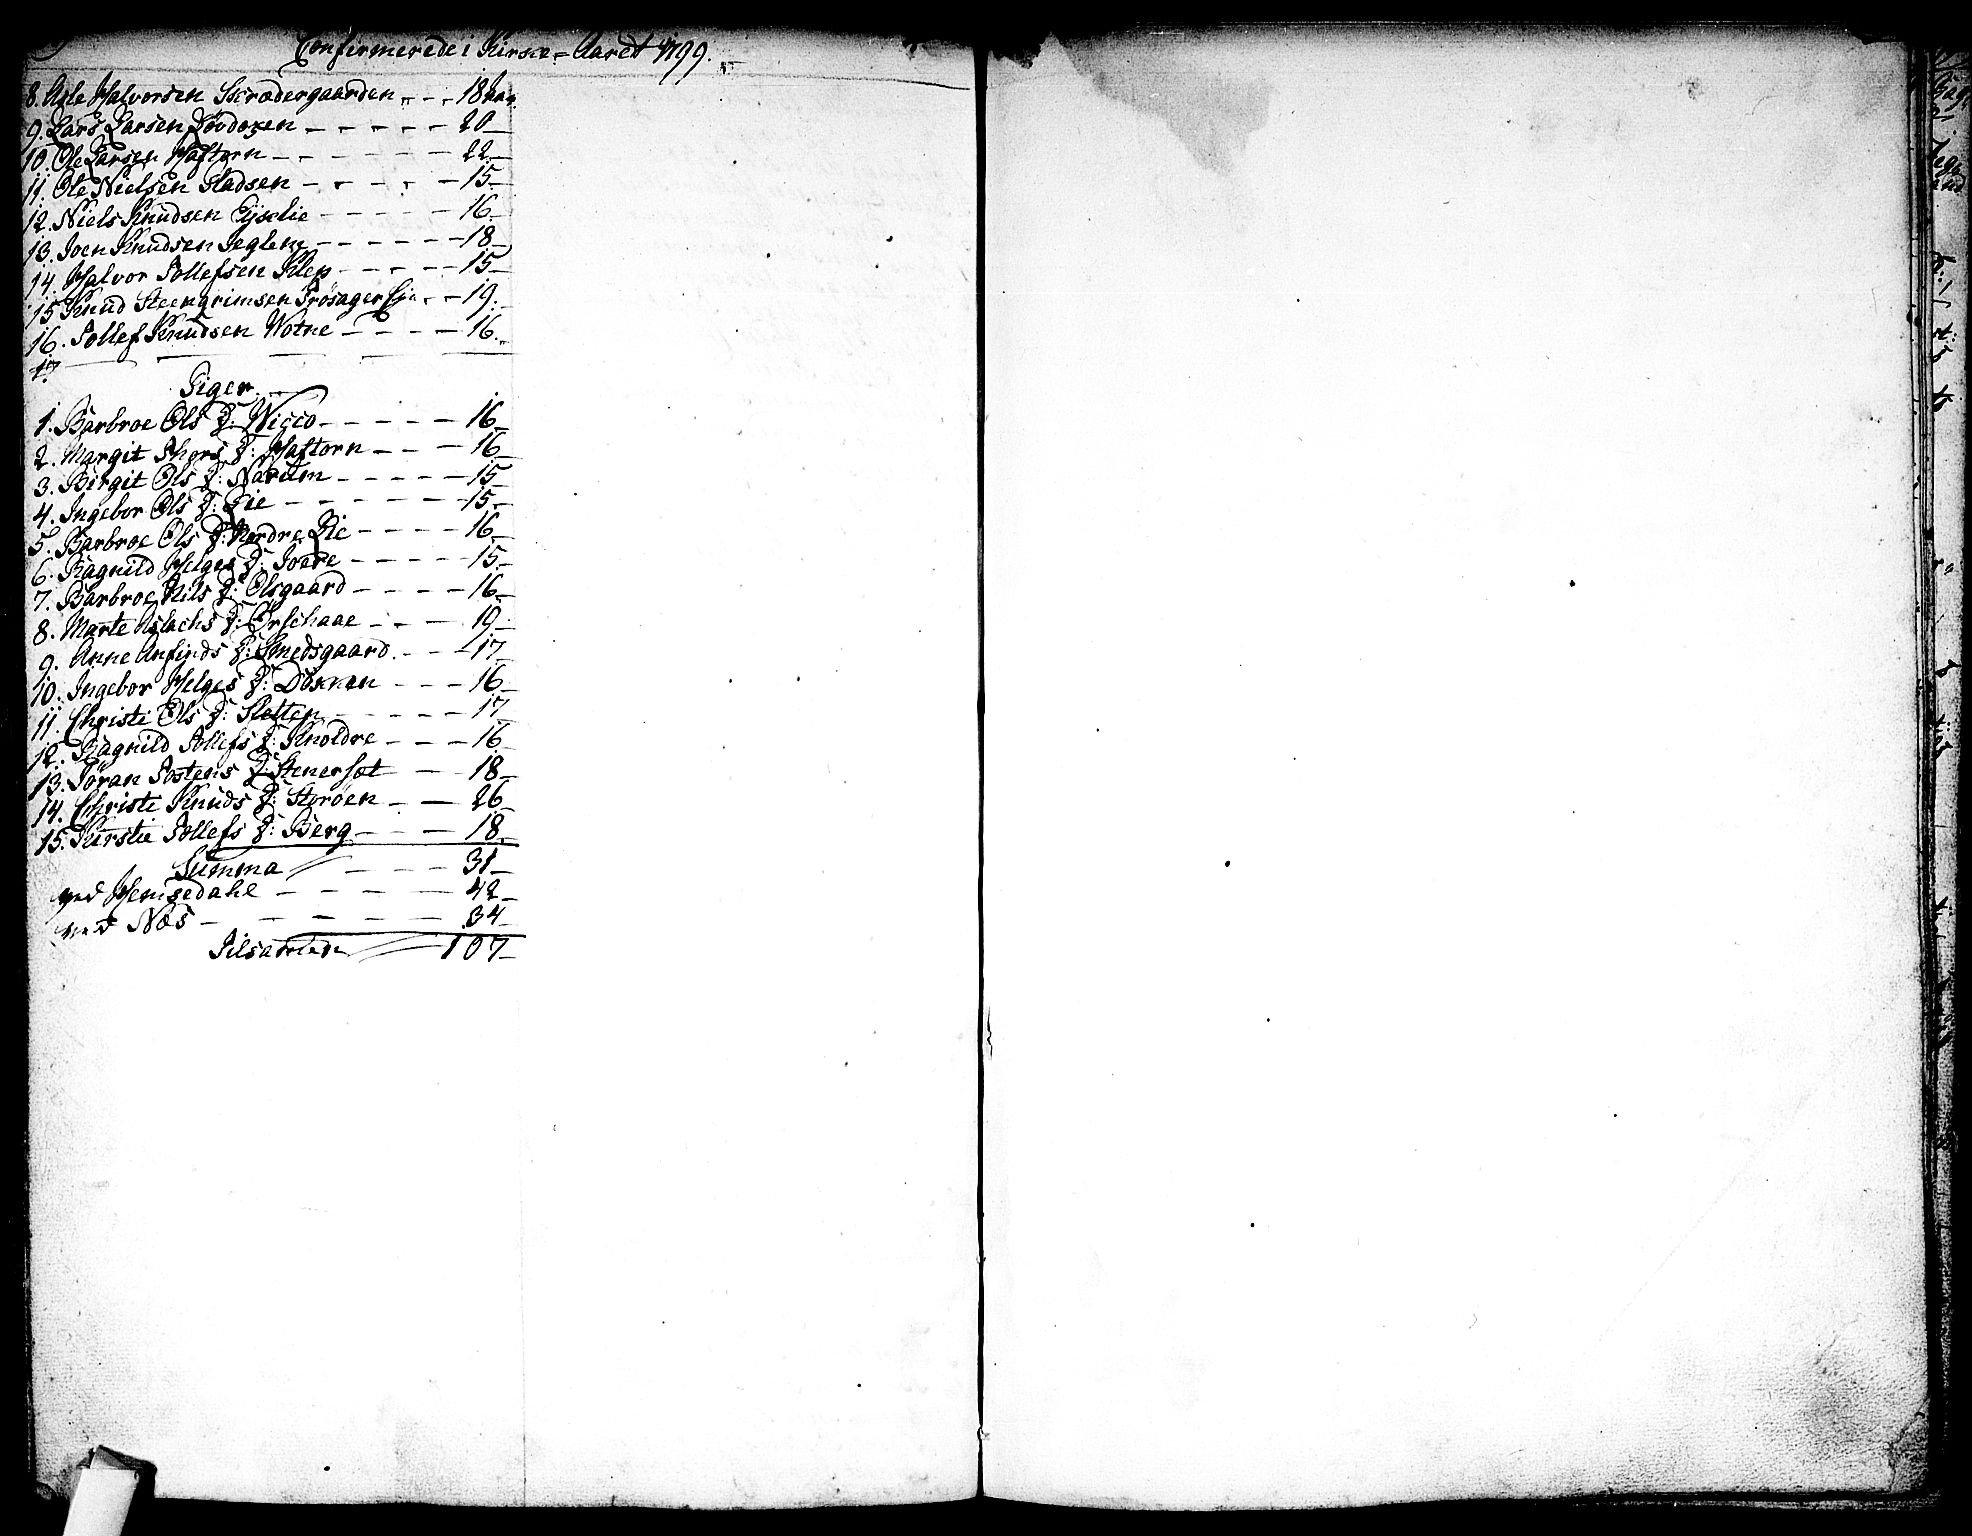 Confirmerede i Kirke-Aaret 1799.
8. Asle Halvorsen Skrædergaarden - - - 18 Aar.
9. Lars Larsen Løvdoken - - - - - 20
10. Ole Larsen Haftorn - - - - - 22
11. Ole Nielsen Gladsen - - - - 15
12. Niels Knudsen - - - - 16
13. Joen Knudsen Jeglene - - - - - 18
14. Halvor Tollefsen Klep - - - - - 15
15 Knud Steengrimsen Trøsager - - 19.
16. Tollef Knudsen Wotne - - - - 16.
17
Piger.
1. Barbroe Ols D: Wicco - - - - - 16
2. Margit Thors D: Haftorn - - - 16
3. Birgit Ols D: Narum - - - - - 15
4. Ingebor Ols D: Lie - - - - - - 15
5. Barbroe Ols D: Nordre Lie - - - - 16
6. Ragnild Helges D: - - - - 15
7. Barbroe Nils D: Elsgaard - - - - 16
8. Marte Aslachs D: - - - 19
9. Anne Anfinds D: Smedsgaard. - - - 17
10. Ingebor Helges D: Døkken - - - 16
11. Christi Ols D: Sletten - - - - 17
12. Ragnild Tollefs D: Knoldre - - - 16
13. Jøran Tostens D: Stenerset - - 18
14. Christi Knuds D: Storøen - - 26
15. Kirstie Tollefs D: Berg - - - 18
Summa - - - 31
ved Hemsedahl - - - - - 42
ved Næs - - - - - 34
Tilsamlen 107